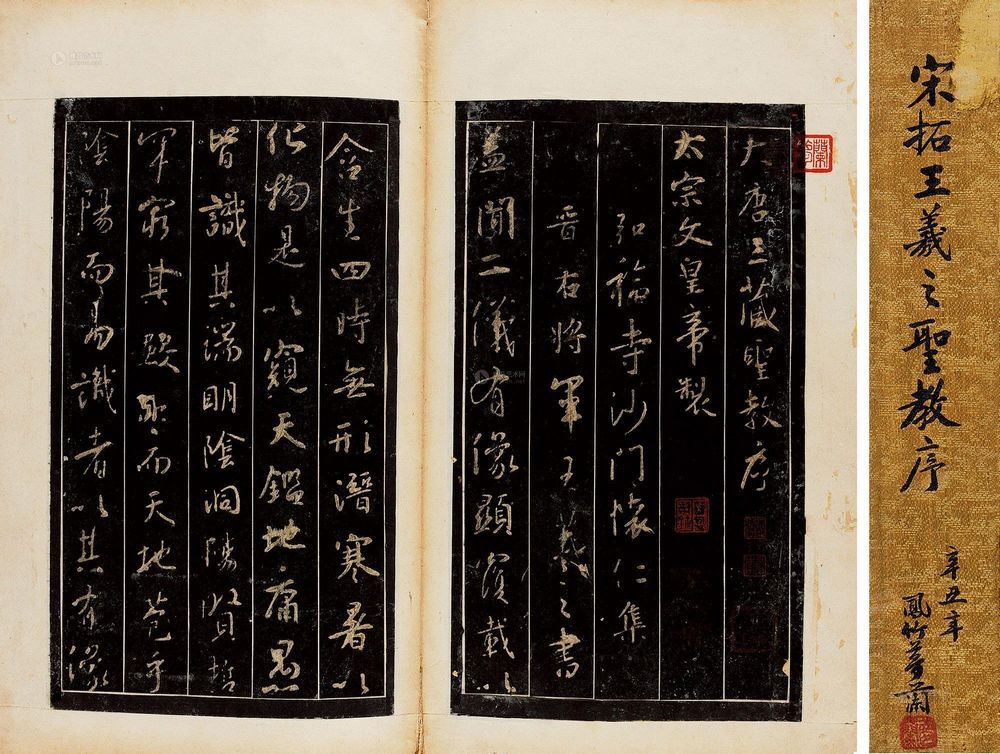 大唐三藏聖教序
太宗文皇帝製
弘福寺沙門懷仁集
晉右將軍王羲之書
蓋聞二儀有像顯覆載以
含生四時無形潛寒暑以
化物是以窺天鑑地庸愚
皆識其端明陰洞陽賢哲
罕窮其數然而天地苞乎
陰陽而易識者以其有像
宋拓王羲之聖教序
辛丑年